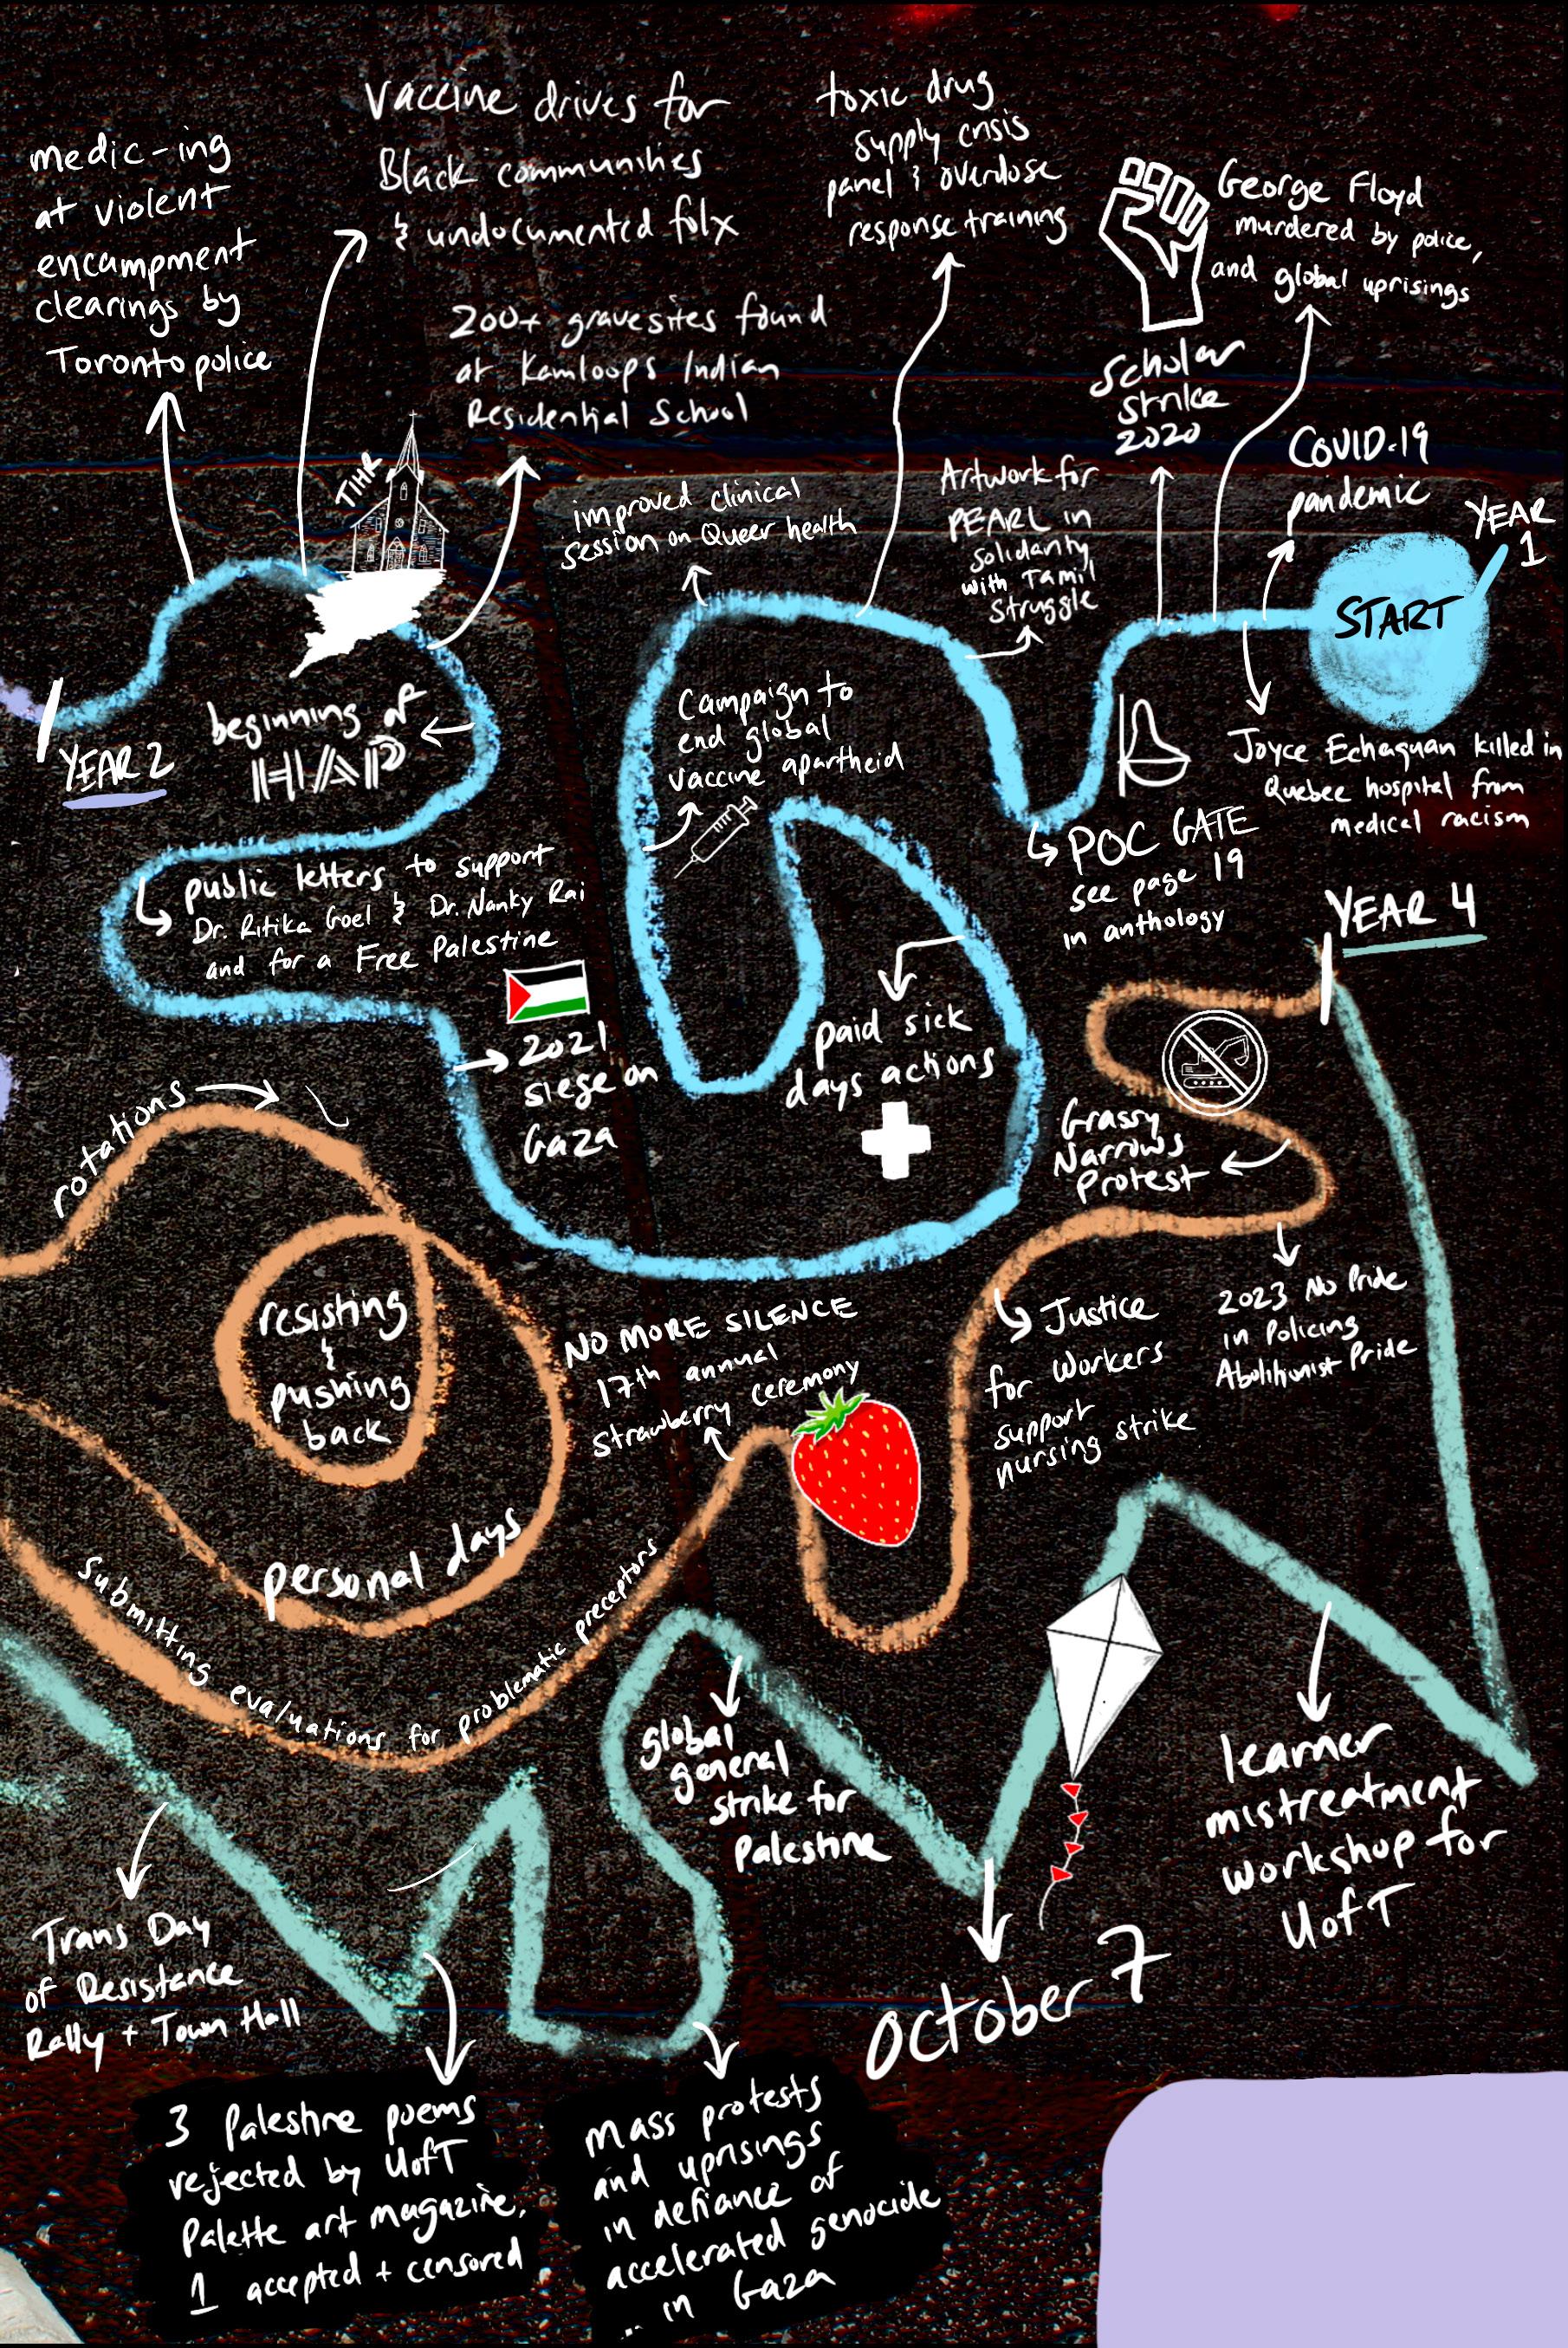 YEAR
1
START
COVID-19
pandemic
Joyce Echaquan killed in
Quebec hospital from
medical racism
George Floyd
murdered by police,
and global uprisings
Scholar
Strike
2020
POC GATE
see page 19
in anthology
Artwork for
PEARL in
Solidarity
with Tamil
Struggle
toxic drug
supply crisis
panel & overdose
response training
improved clinical
session on Queer health
Campaign to
end global
vaccine apartheid
paid sick
days actions
2021
siege on
Gaza
public letters to support
Dr. Ritika Goel & Dr. Nanky Rai
and for a Free Palestine
beginning of
HAP
200+ gravesites found
at Kamloops Indian
Residential School
TIHR
Vaccine drives for
Black communities
& undocumented folx
medic-ing
at violent
encampment
clearings by
Toronto police
YEAR 2
rotations
resisting
&
pushing
back
personal days
Submitting evaluations for problematic preceptors
NO MORE SILENCE
17th annual
Strawberry ceremony
Justice
for workers
support
nursing strike
2023 No Pride
in Policing
Abolitionist Pride
Grassy
Narrows
Protest
YEAR 4
learner
mistreatment
workshop for
UofT
October 7
global
general
strike for
Palestine
mass protests
and uprisings
in defiance of
accelerated genocide
... in Gaza
3 Palestine poems
rejected by UofT
Palette art magazine,
1 accepted + censored
Trans Day
of Resistance
Rally + Town Hall